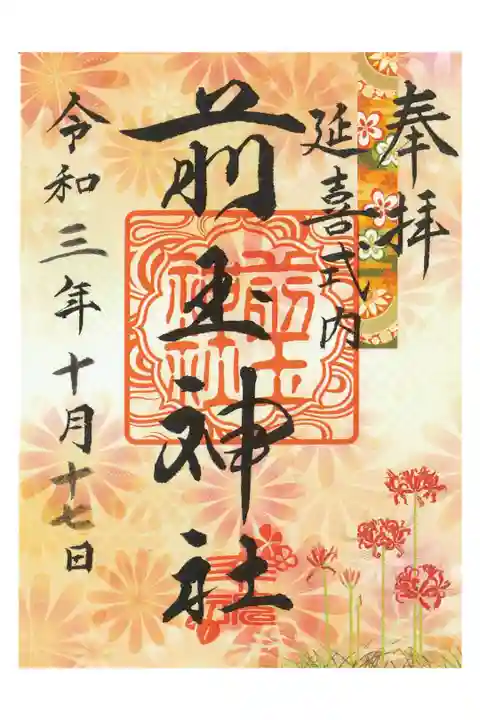 奉拝
延喜式内
前玉神社
前玉神社
令和三年十月十七日